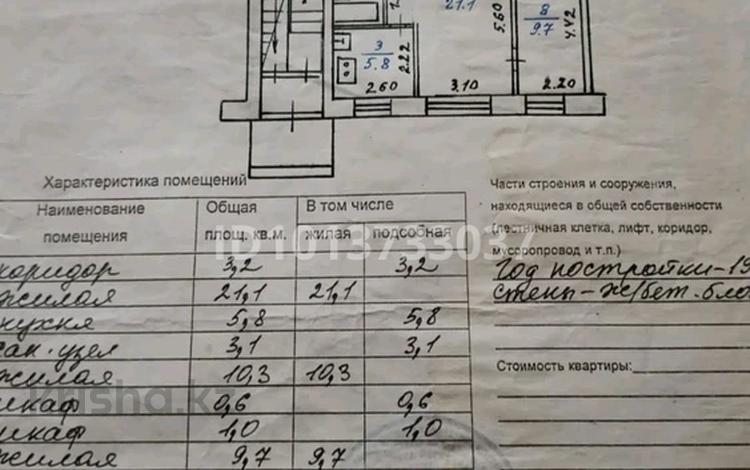 21.1
5.60
8
9.7
4.42
3
5.8
2.22
2.60
3.10
2.20
Характеристика помещений
Наименование помещения
Общая площ. кв.м.
В том числе
жилая
подсобная
коридор 3,2 3,2
жилая 21,1 21,1
кухня 5,8 5,8
сан. узел 3,1 3,1
жилая 10,3 10,3
шкаф 0,6 0,6
шкаф 1,0 1,0
жилая 9,7 9,7
Части строения и сооружения,
находящиеся в общей собственности
(лестничная клетка, лифт, коридор,
мусоропровод и т.п.)
Год постройки-19
стены-ж/бет. бло
Стоимость квартиры:
ID 1013733037
krisha.kz